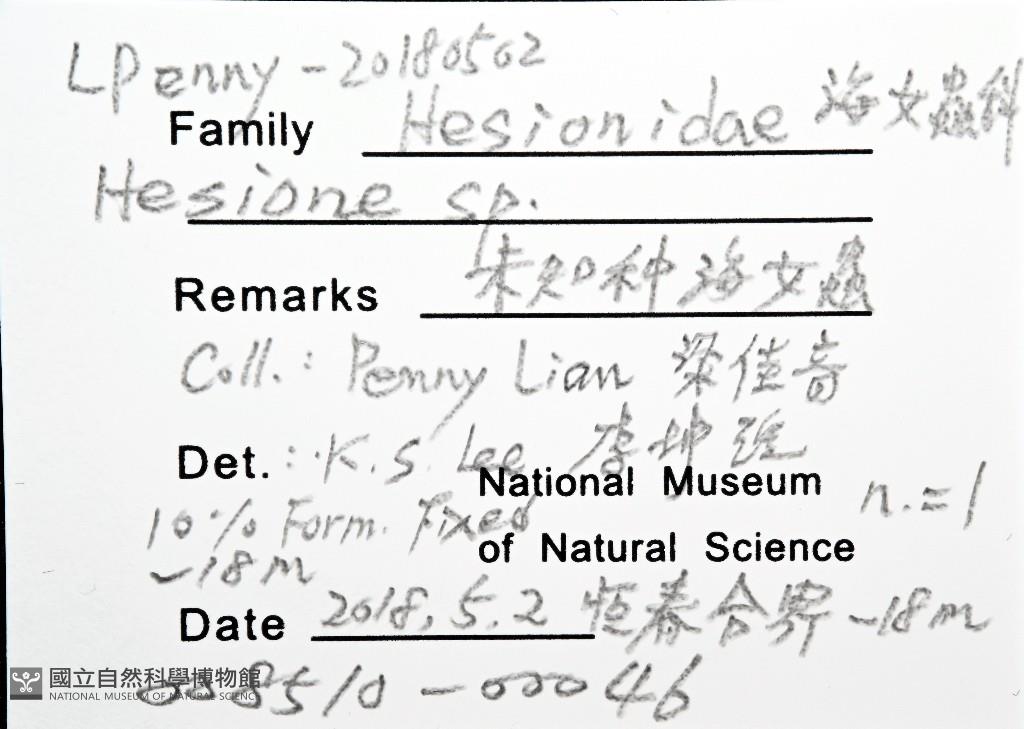 LPenny - 20180502
Family Hesionidae 海女蟲科
Hesione sp.
Remarks 未知种海女蟲
Coll.: Penny Lian 梁佳音
Det.: K. S. Lee 李坤瑄
National Museum n.=1
10% Form. Fixed
of Natural Science
-18m
Date 2018, 5. 2 恒春合界 -18m
國立自然科學博物館
NATIONAL MUSEUM OF NATURAL SCIENCE
008510-00046